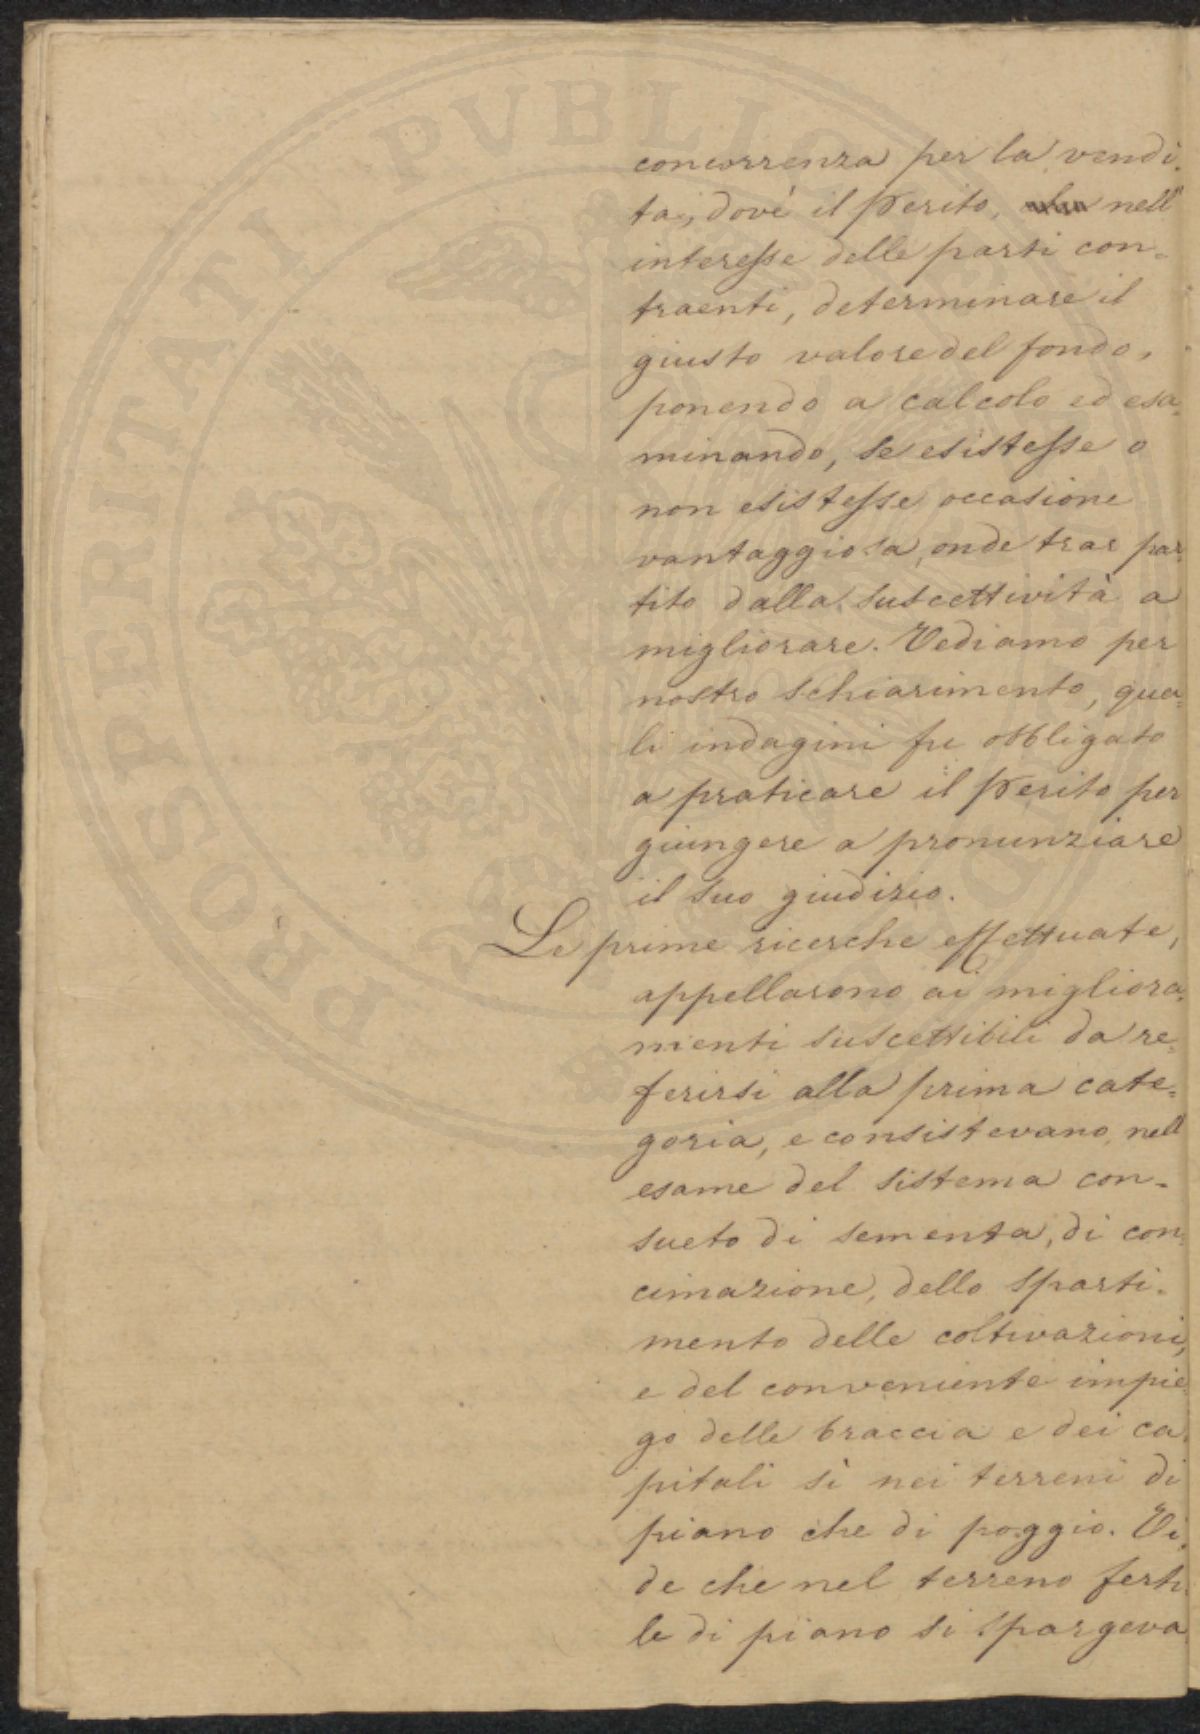 concorrenza per la vendi-
ta, dovè il Perito, nell'
interesse delle parti con-
traenti, determinare il
giusto valore del fondo,
ponendo a calcolo ed esa-
minando, se esistesse o
non esistesse occasione
vantaggiosa, onde trar par-
tito dalla suscettività a
migliorare. Vediamo per
nostro schiarimento, qua-
li indagini fu obbligato
a praticare il Perito per
giungere a pronunziare
il suo giudizio.
Le prime ricerche effettuate,
appellarono ai migliora-
menti suscettibili da re-
ferirsi alla prima cate-
goria, e consistevano nell
esame del sistema con-
sueto di sementa, di con-
cimazione, dello sparti-
mento delle coltivazioni,
e del conveniente impie-
go delle braccia e dei ca-
pitali sì nei terreni di
piano che di poggio. Vi-
de che nel terreno ferti-
le di piano si spargeva
PROSPERITATI PVBLIC